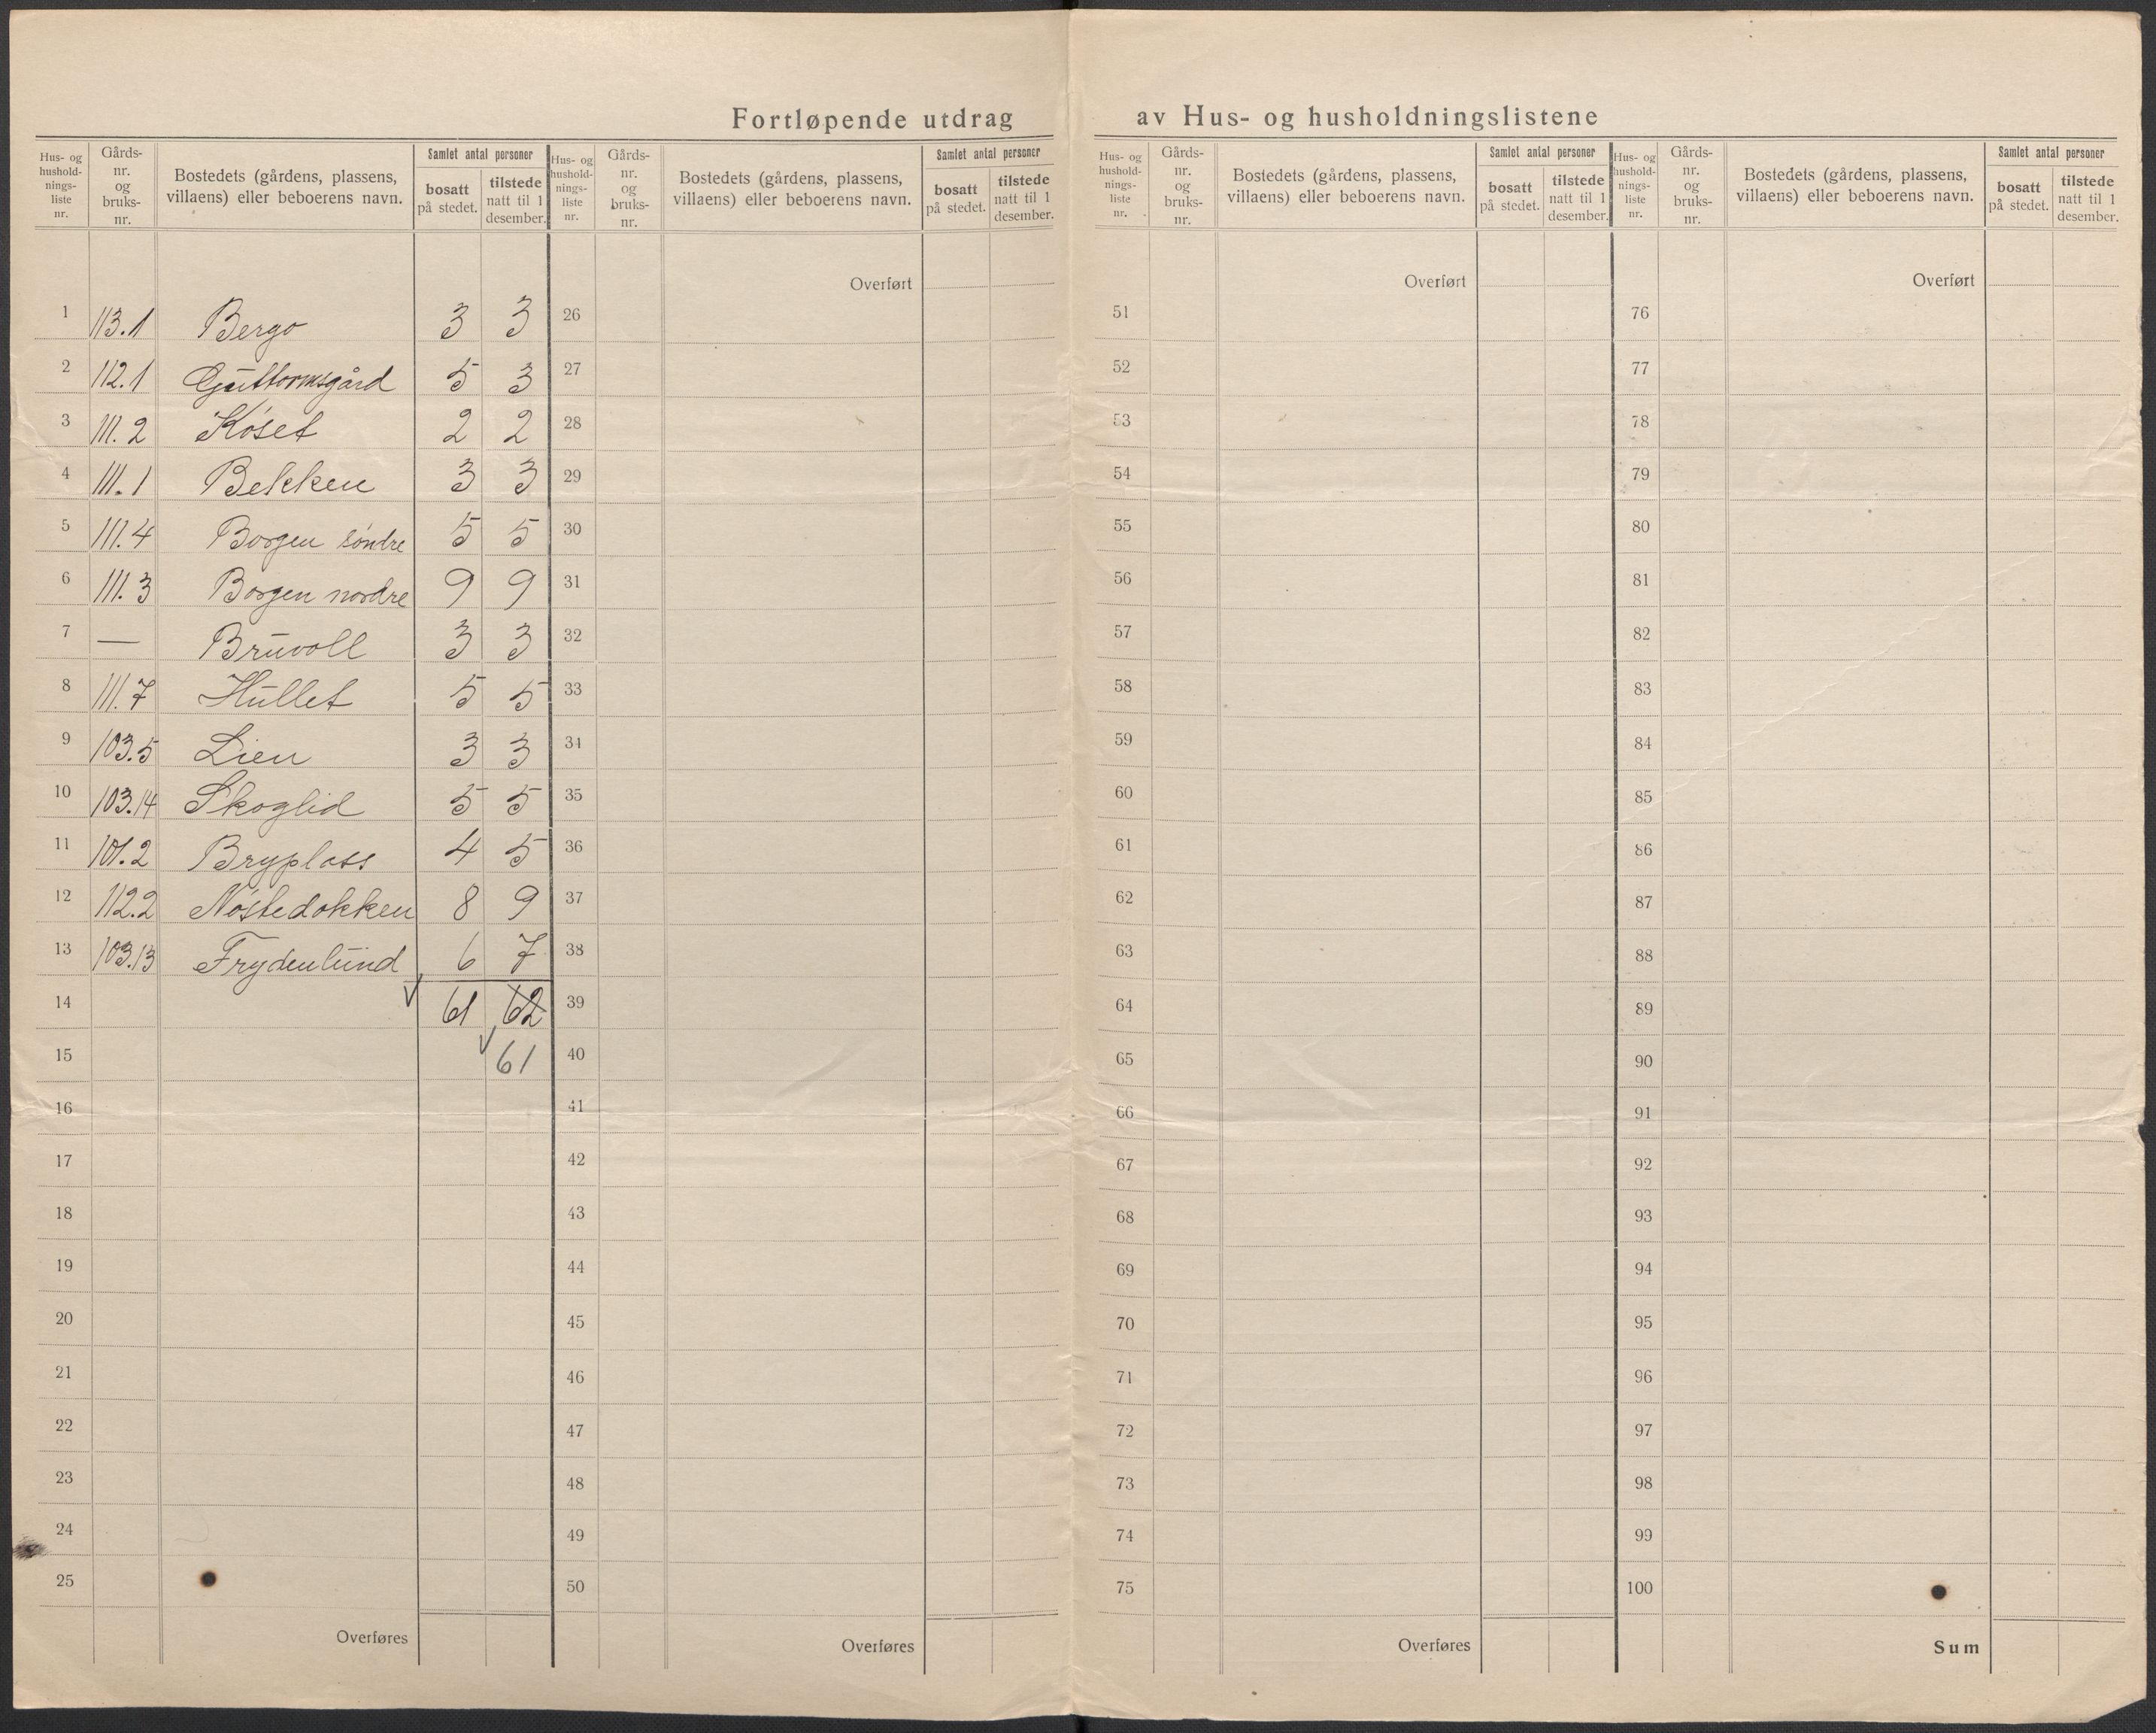 Fortløpende utdrag av Hus- og husholdningslistene
Hus- og hushold-nings-liste nr. Gårds-nr. og bruks-nr. Bostedets (gårdens, plassens, villaens) eller beboerens navn. Samlet antal personer bosatt på stedet. tilstede natt til 1 desember.
1 113.1 Bergo 3 3
2 112.1 Guttormsgård 5 3
3 111.2 Køset 2 2
4 111.1 Bekken 3 3
5 111.4 Borgen søndre 5 5
6 111.3 Borgen nordre 9 9
7 — Bruvoll 3 3
8 111.7 Hullet 5 5
9 103.5 Lien 3 3
10 103.14 Skoglid 5 5
11 101.2 Bryplass 4 5
12 112.2 Nøstedokken 8 9
13 103.13 Frydenlund 6 7
14 61 62
15 61
16
17
18
19
20
21
22
23
24
25
Overføres
Hus- og hushold-nings-liste nr. Gårds-nr. og bruks-nr. Bostedets (gårdens, plassens, villaens) eller beboerens navn. Samlet antal personer bosatt på stedet. tilstede natt til 1 desember.
Overført
26
27
28
29
30
31
32
33
34
35
36
37
38
39
40
41
42
43
44
45
46
47
48
49
50
Overføres
Hus- og hushold-nings-liste nr. Gårds-nr. og bruks-nr. Bostedets (gårdens, plassens, villaens) eller beboerens navn. Samlet antal personer bosatt på stedet. tilstede natt til 1 desember.
Overført
51
52
53
54
55
56
57
58
59
60
61
62
63
64
65
66
67
68
69
70
71
72
73
74
75
Overføres
Hus- og hushold-nings-liste nr. Gårds-nr. og bruks-nr. Bostedets (gårdens, plassens, villaens) eller beboerens navn. Samlet antal personer bosatt på stedet. tilstede natt til 1 desember.
Overført
76
77
78
79
80
81
82
83
84
85
86
87
88
89
90
91
92
93
94
95
96
97
98
99
100
Sum